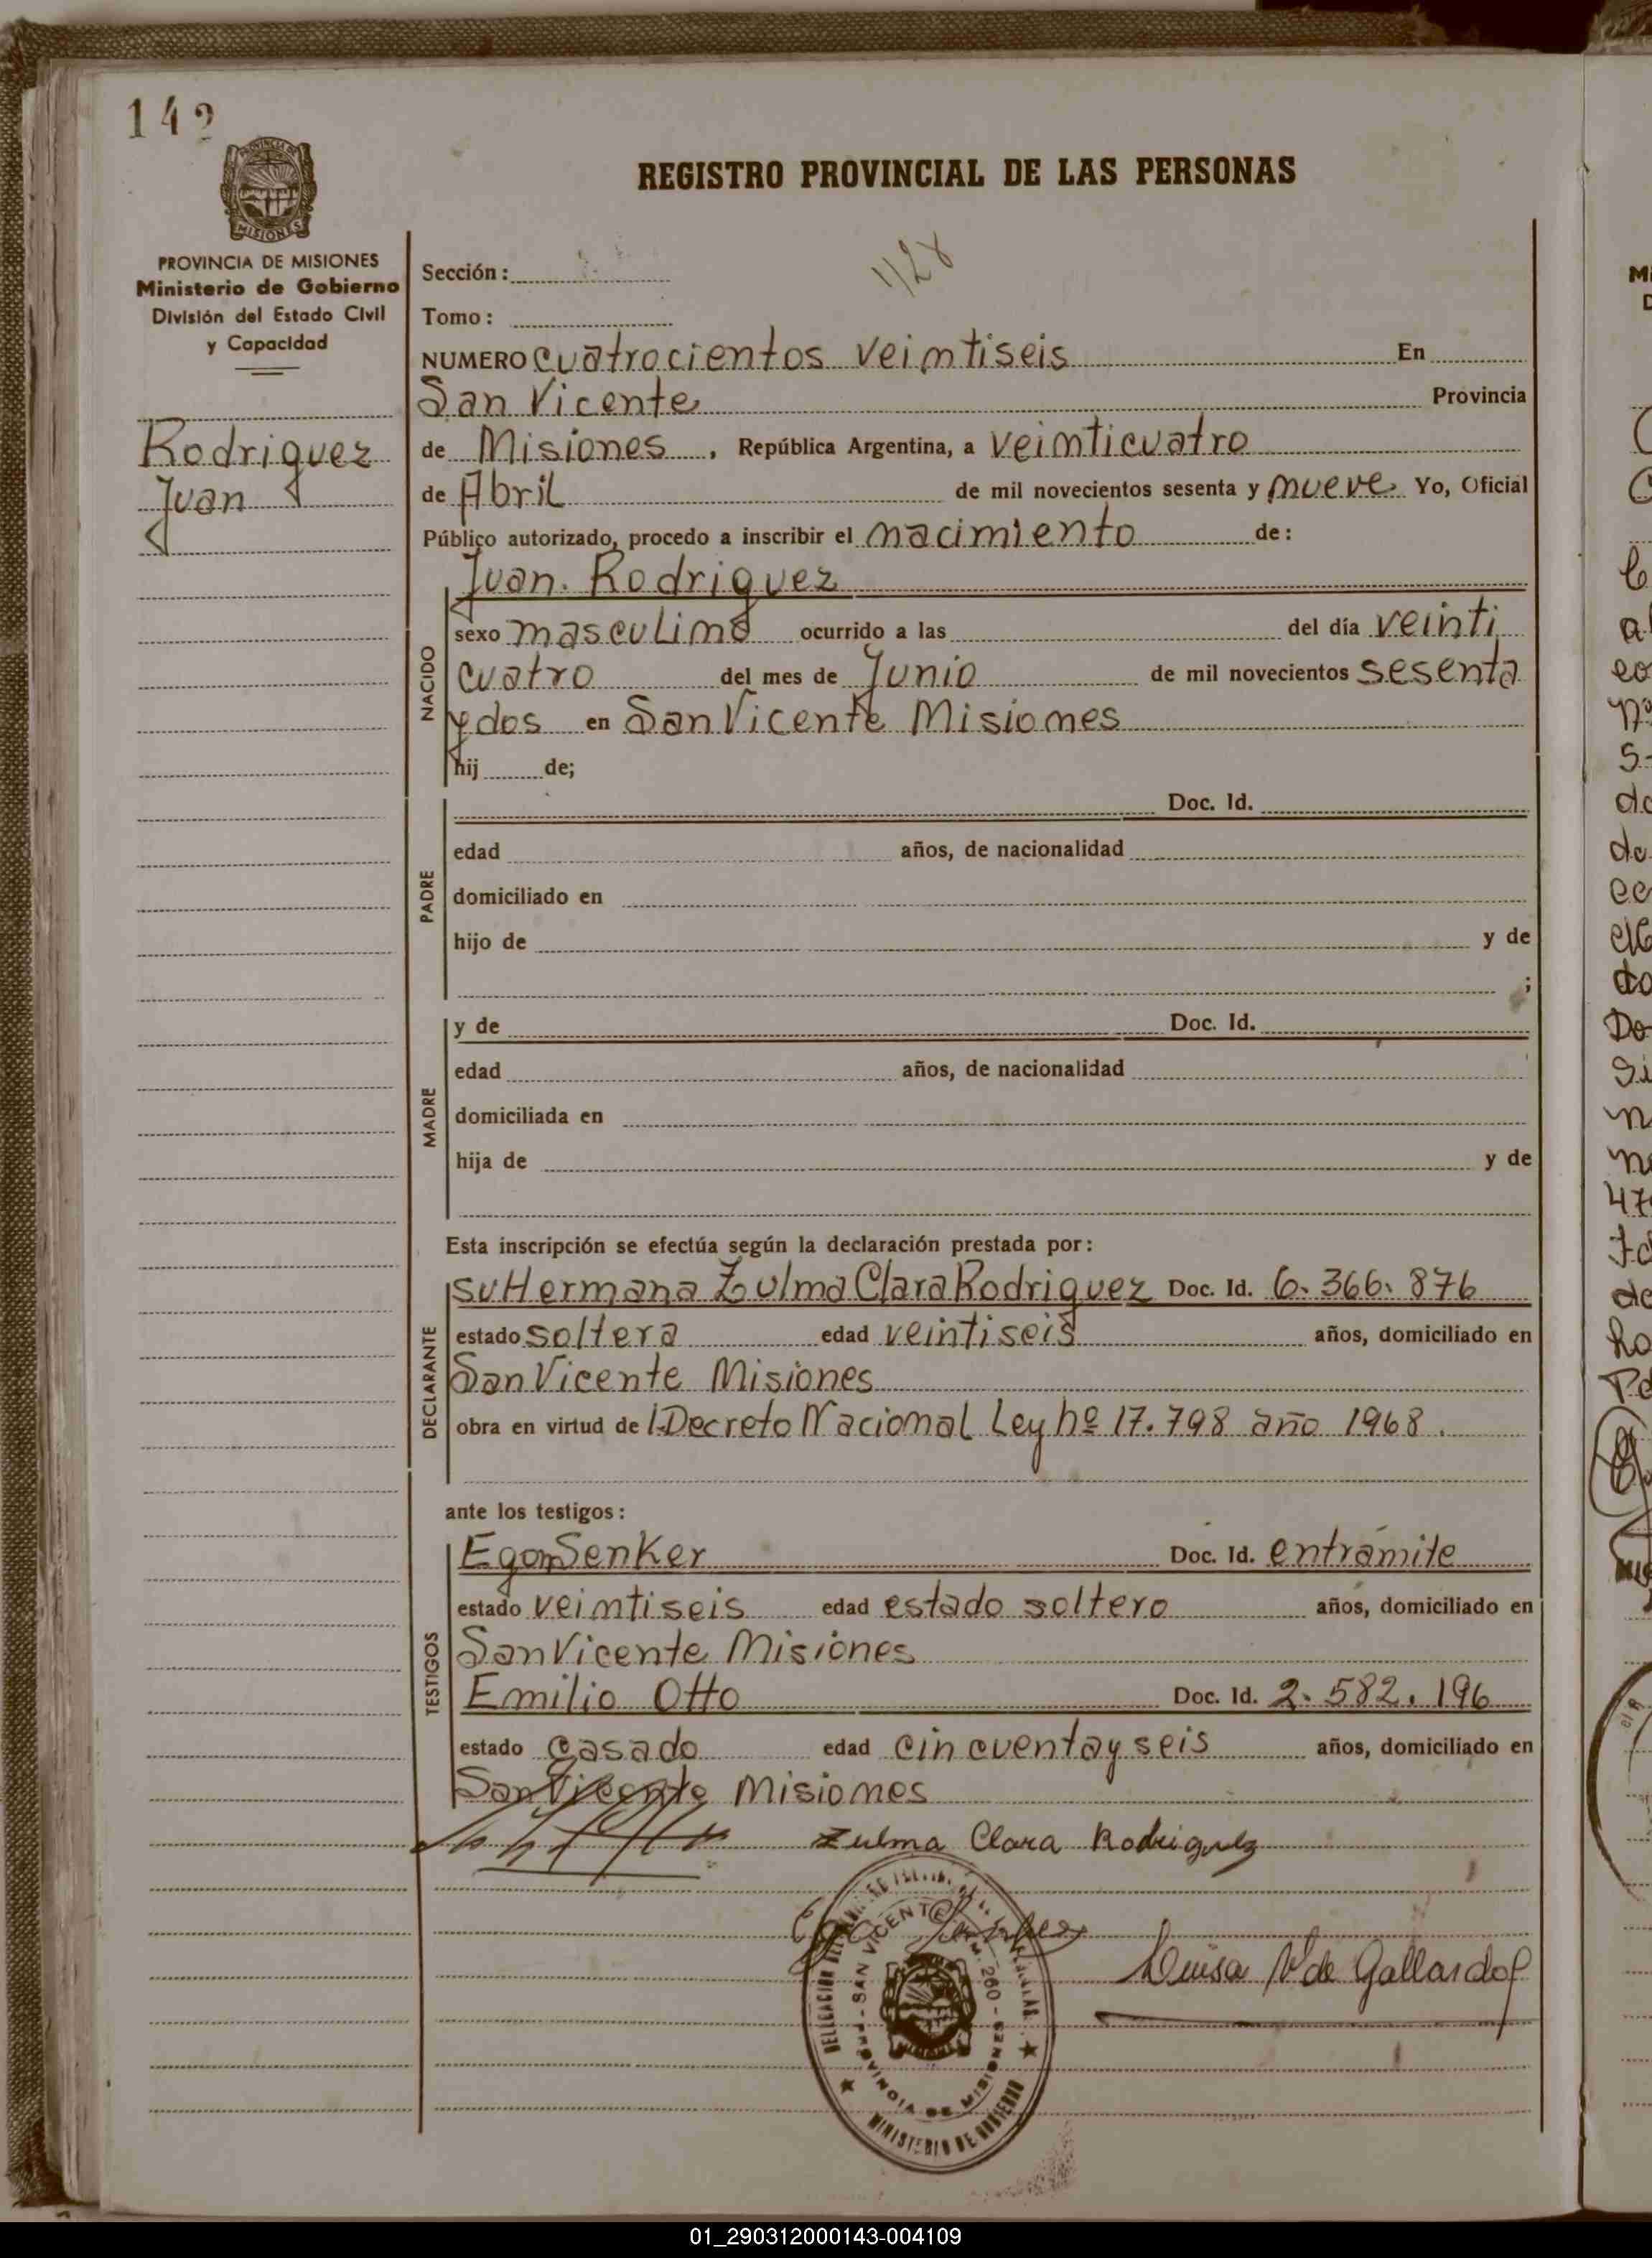 142
REGISTRO PROVINCIAL DE LAS PERSONAS
MISIONES
PROVINCIA DE MISIONES
Ministerio de Gobierno
División del Estado Civil
y Capacidad
Rodriguez
Juan
Sección:
Tomo:
NUMERO cuatrocientos veimtiseis En
San Vicente Provincia
de Misiones, República Argentina, a veimticuatro
de Abril de mil novecientos sesenta y mueve Yo, Oficial
Público autorizado, procedo a inscribir el nacimiento de:
NACIDO
Juan. Rodriguez
sexo masculimo ocurrido a las del día veinti
cuatro del mes de Junio de mil novecientos sesenta
y dos en San Vicente Misiomes
hij de;
PADRE
Doc. Id.
edad años, de nacionalidad
domiciliado en
hijo de y de
;
MADRE
y de Doc. Id.
edad años, de nacionalidad
domiciliada en
hija de y de
Esta inscripción se efectúa según la declaración prestada por:
DECLARANTE
su Hermana Zulma Clara Rodriguez Doc. Id. 6.366.876
estado soltera edad veintiseis años, domiciliado en
San Vicente Misiones
obra en virtud de Decreto Nacional Ley nº 17.798 año 1968.
ante los testigos:
TESTIGOS
Egom Senker Doc. Id. entramite
estado veimtiseis edad estado soltero años, domiciliado en
San Vicente Misiones
Emilio Otto Doc. Id. 2.582.196
estado casado edad cincuenta y seis años, domiciliado en
San Vicente Misiomes
Zulma Clara Rodriguez
Luisa V de Gallardo
SAN VICENTE
PROVINCIA DE MISIONES
MINISTERIO DE GOBIERNO
01_290312000143-004109